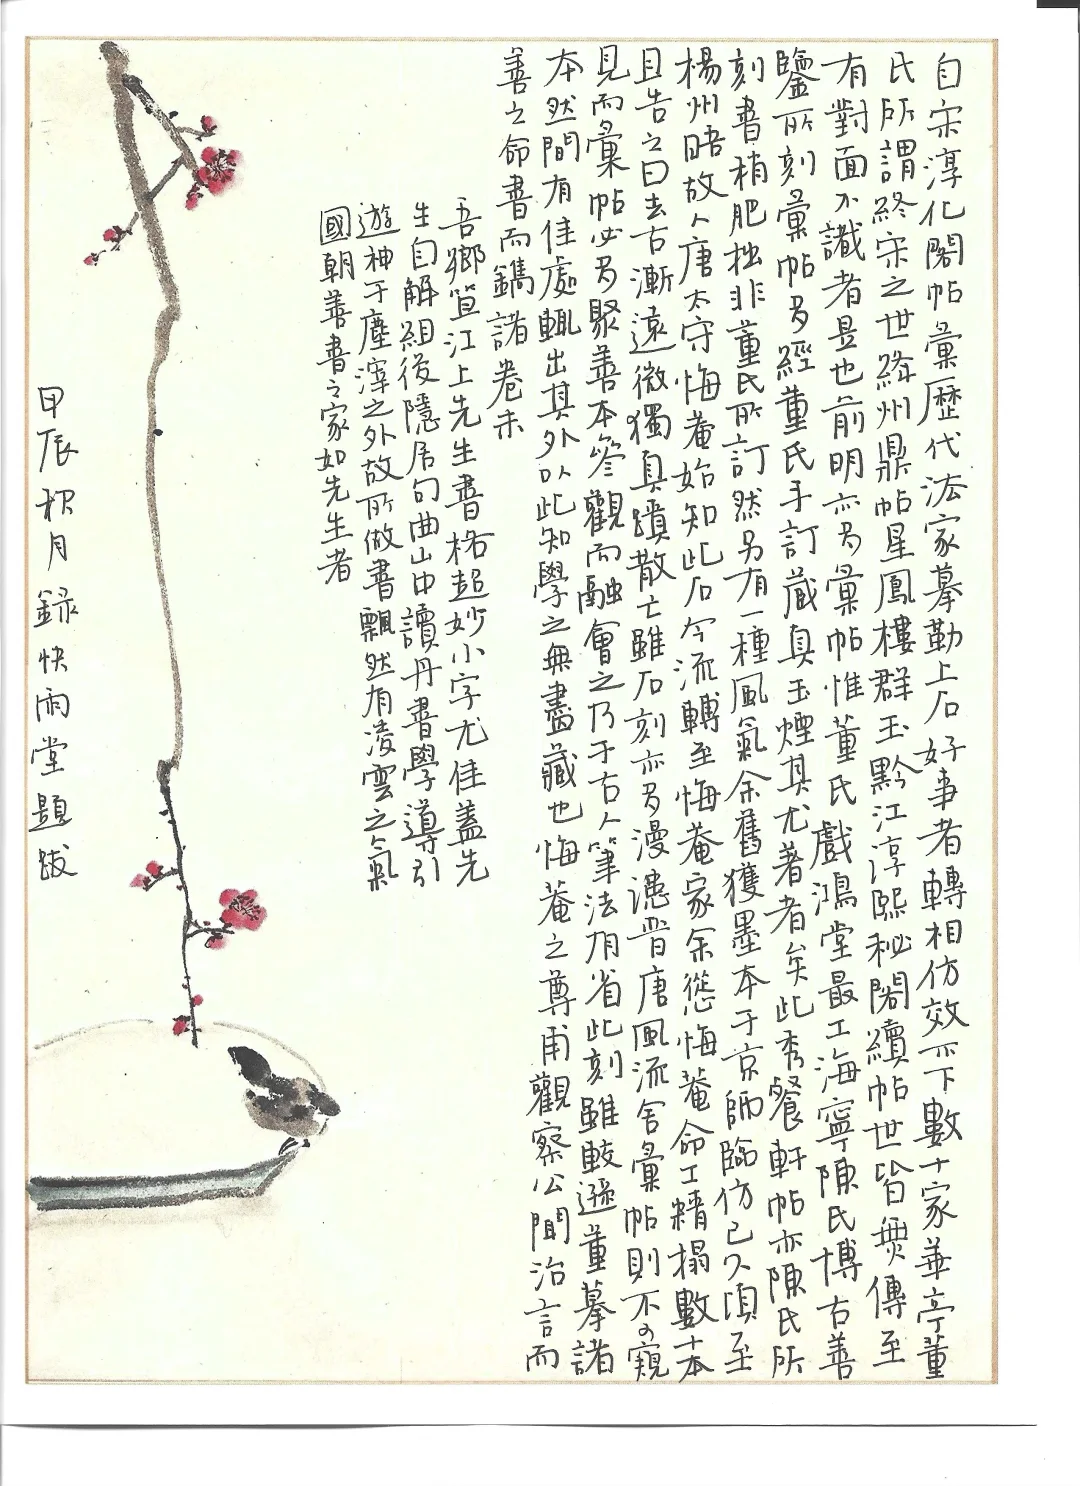 自宋淳化閣帖彙歷代法家摹勒上石好事者轉相仿效不下數十家華亭董
氏所謂終宋之世絳州鼎帖星鳳樓群玉黔江淳熙秘閣續帖世皆無傳至
有對面不識者是也前明亦多彙帖惟董氏戲鴻堂最工海寧陳氏博古善
鑒所刻彙帖多經董氏手訂藏真玉煙其尤著者矣此秀餐軒帖亦陳氏所
刻書稍肥拙非董氏所訂然另有一種風氣余舊獲墨本于京師臨仿已久頃至
楊州晤故人唐太守悔菴始知此石今流轉至悔菴家余慫悔菴命工精搨數十本
且告之曰去古漸遠微獨真蹟散亡雖石刻亦多漫漶晉唐風流舍彙帖則不可窺
見而彙帖必多聚善本參觀而融會之乃于古人筆法有省此刻雖較遜董摹諸
本然間有佳處輒出其外以此知學之無盡藏也悔菴之尊甫觀察公聞治言而
善之命書而鐫諸卷末
吾鄉笪江上先生書格超妙小字尤佳蓋先
生自解組後隱居句曲山中讀丹書學導引
遊神于塵滓之外故所做書飄然有凌雲之氣
國朝善書之家如先生者
甲辰秋月錄快雨堂題跋